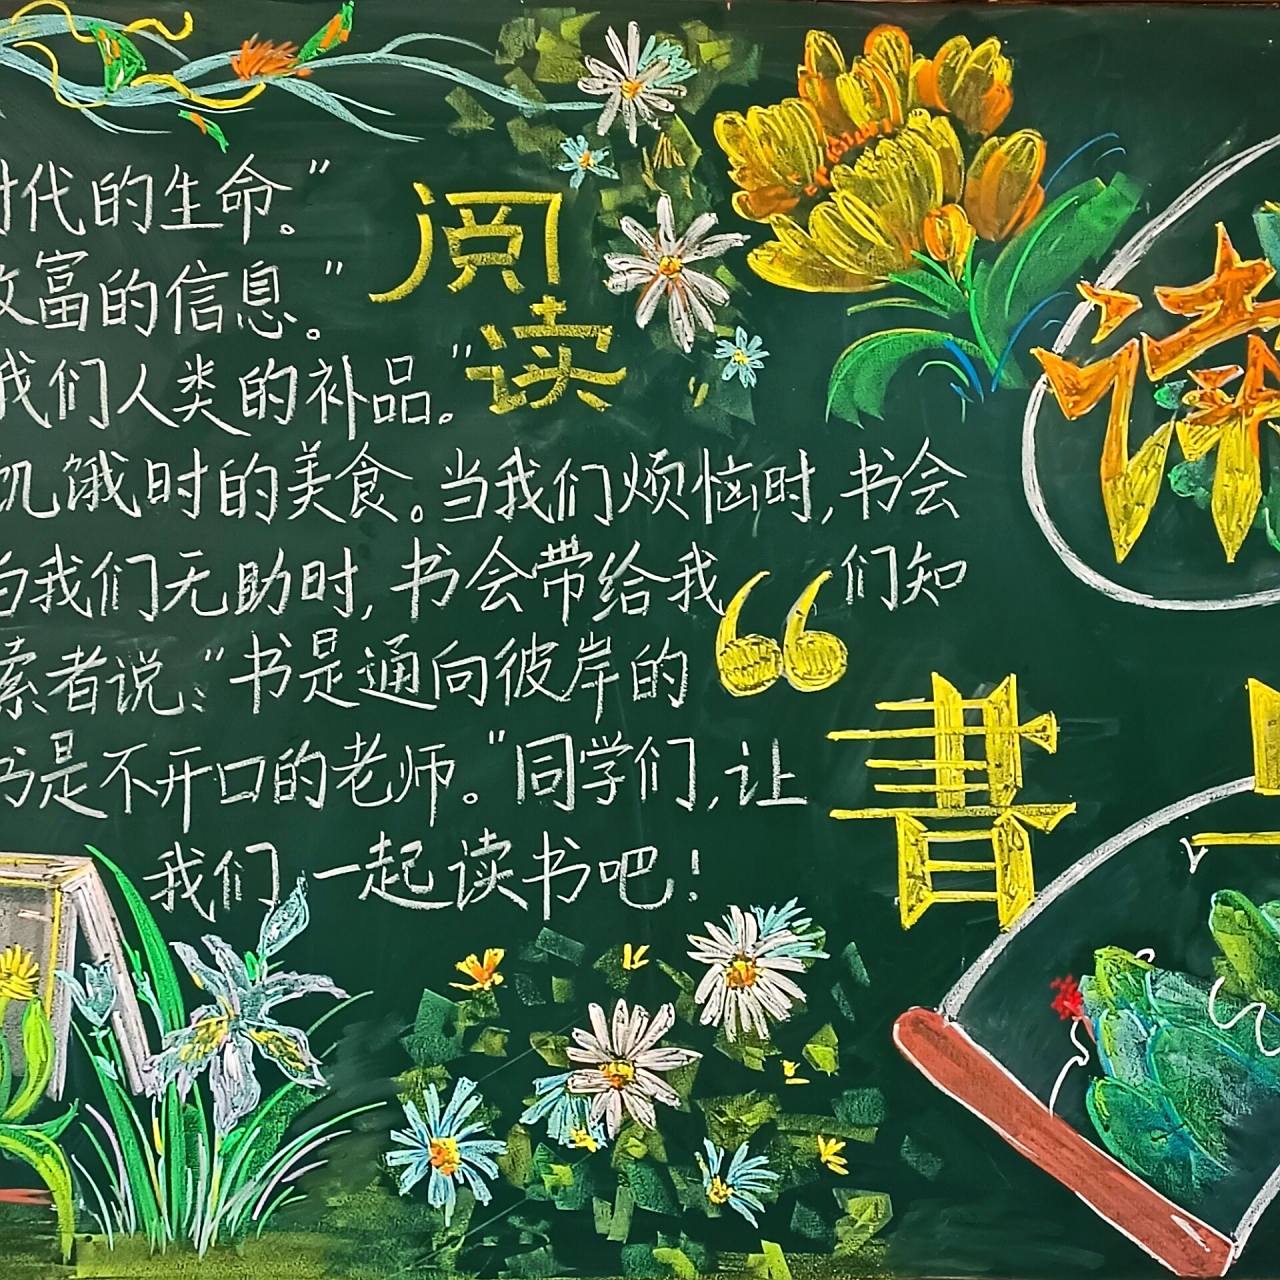 时代的生命。”
富的信息。”
我们人类的补品。”
阅
读
饥饿时的美食。当我们烦恼时,书会
当我们无助时,书会带给我们知
索者说:“书是通向彼岸的
书是不开口的老师。”同学们,让
我们一起读书吧!
读
“
書